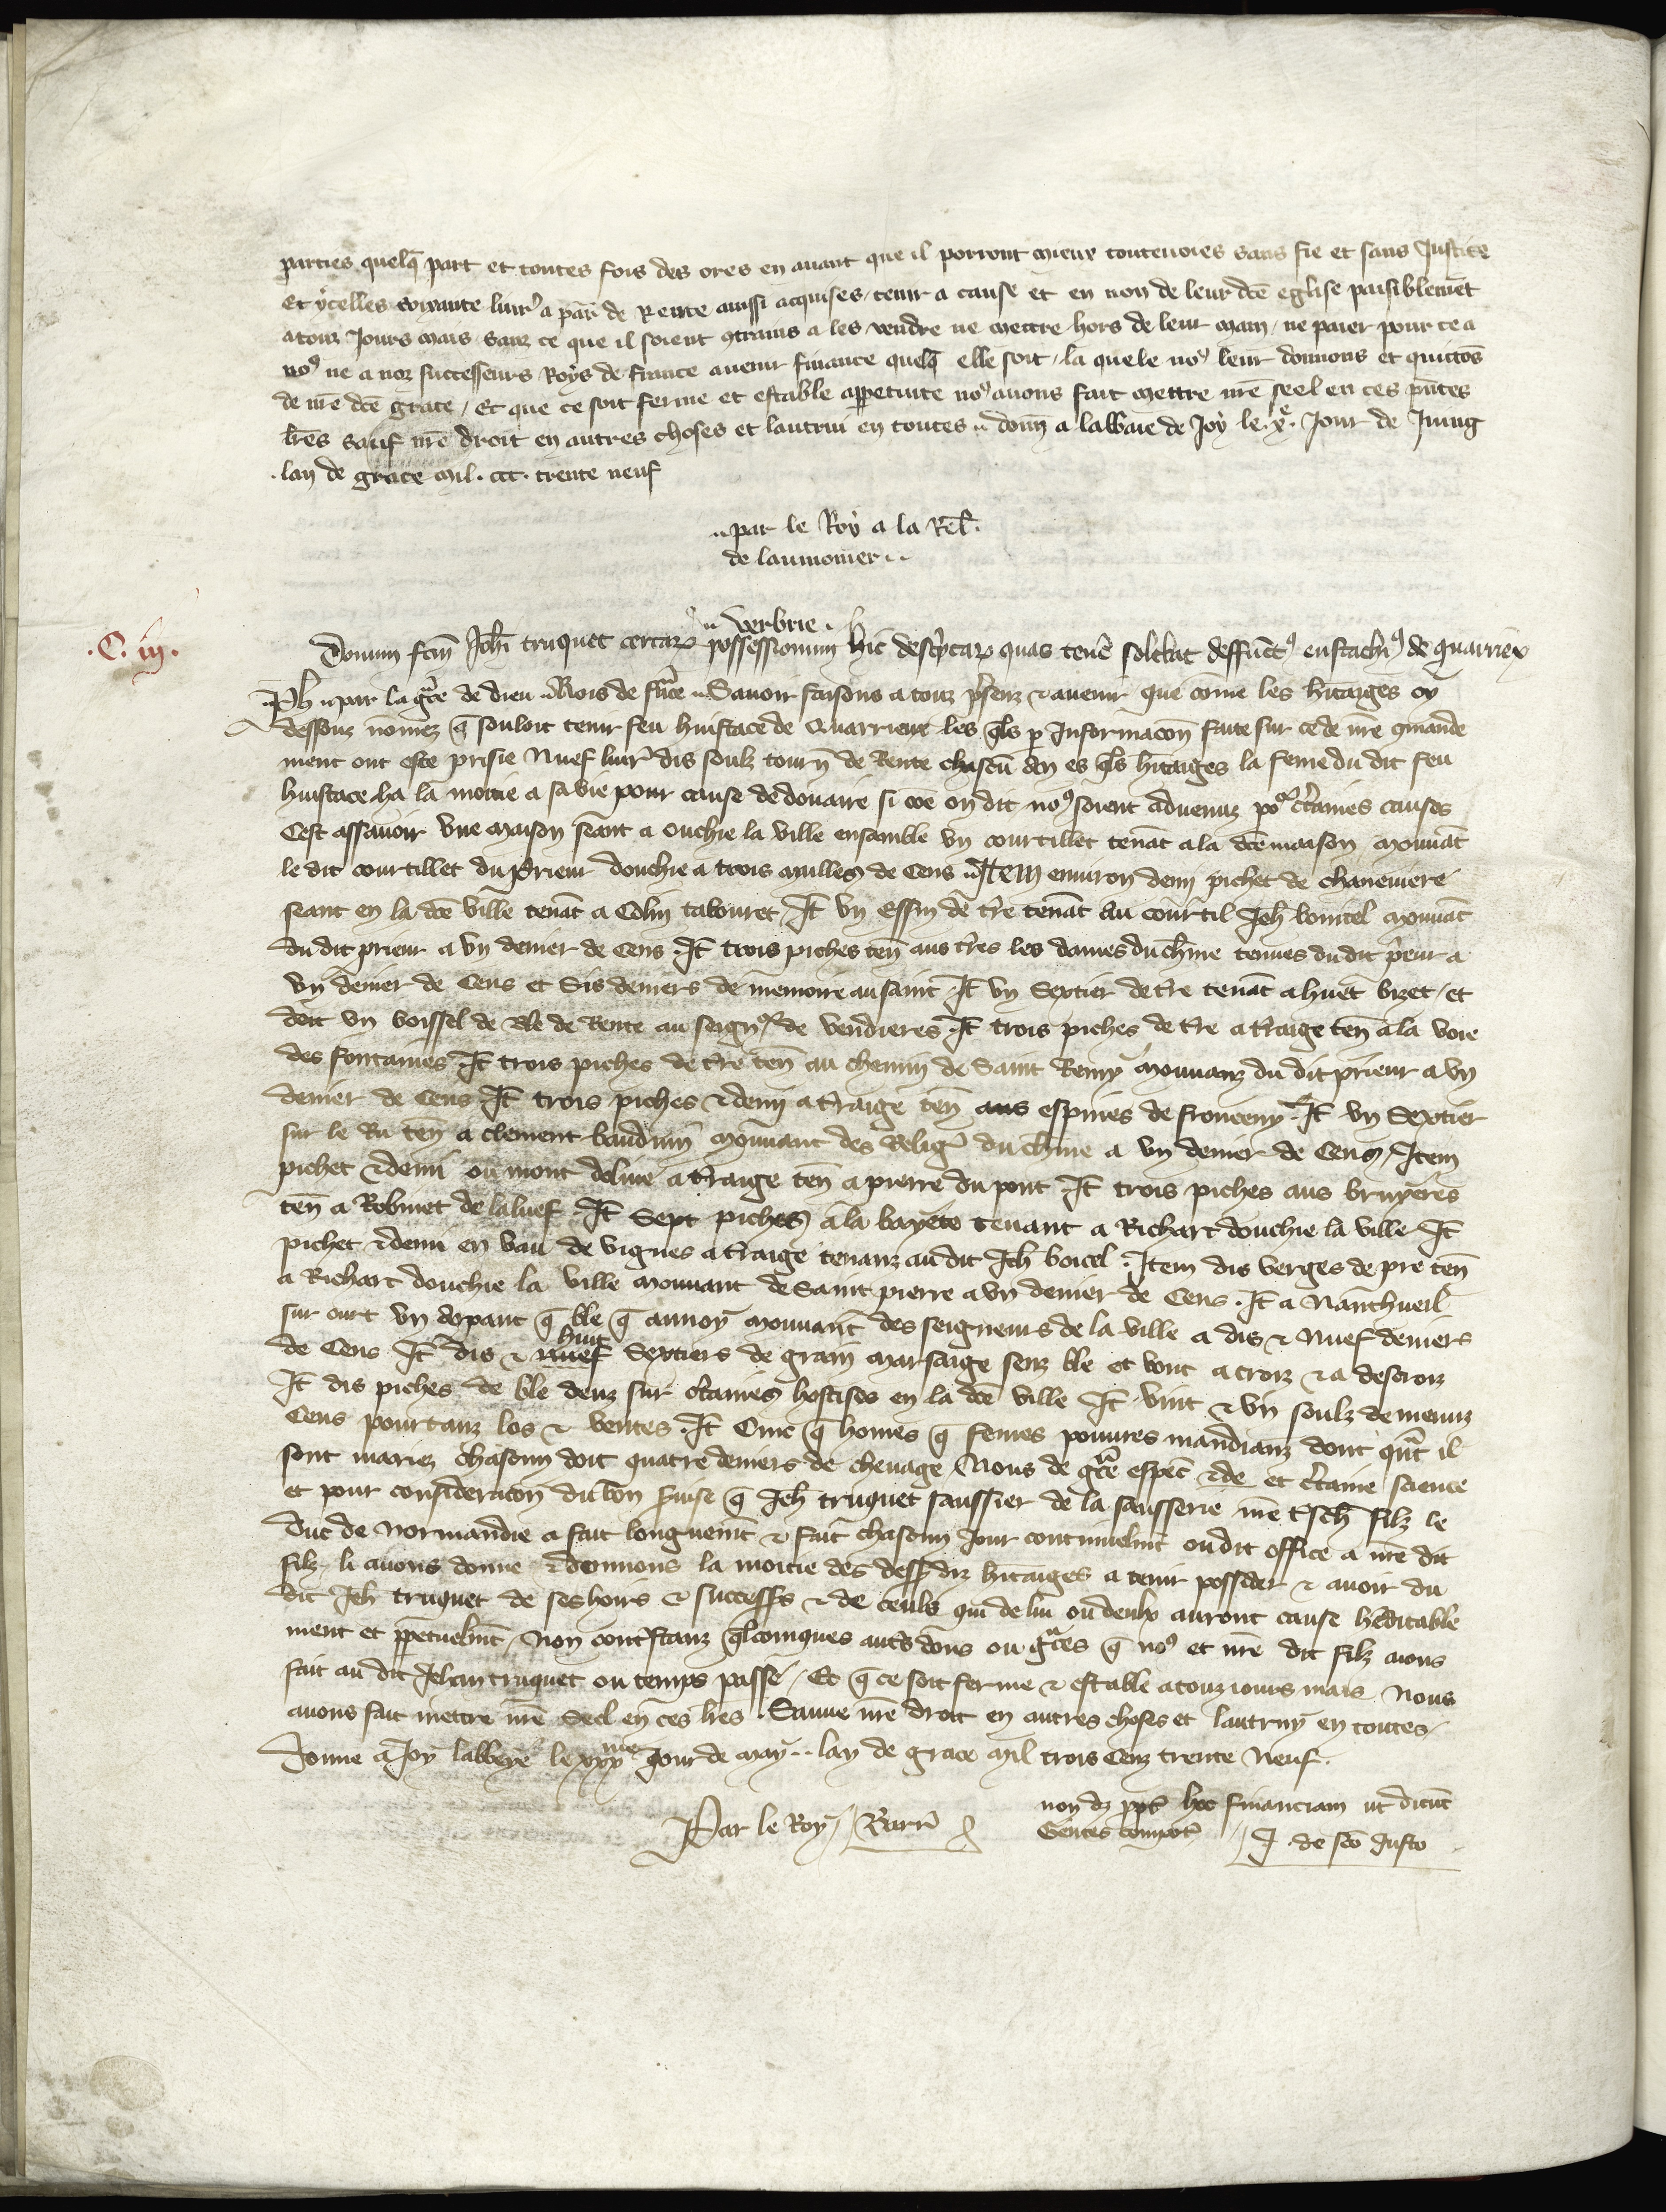 parties quelq̄ part et toutes fois des ores en avant que il porront mieux toutevoies sans fie et sans Justice
Et ycelles soixante livr̄ a par̄ de Rente aussi acquises, tenir a cause et en non de leur dc̄e eglise paisiblemēt
a touz Jours mais sanz ce que il soient ꝯtrains a les vendre ne mettre hors de leur main, ne paier pour ce a
noꝰ ne a noz successeurs Roys de france avenir finance quelq̄ elle soit, la quele noꝰ leur donnons et quictōs
de nr̄e dc̄e grace, Et que ce soit ferme et estable a ꝑpetuite noꝰ avons fait mettre nr̄e seel en ces pn̄tes
lr̄es sauf nr̄e droit en autres choses et lautrui en toutes .. donn̄ a labbaie de Joy le .xe. Jour de Juing
lan de grace mil .ccc. trente neuf
.. par le Roy a la Rel̄.
de laumonier ..
.. verbrie .
.C. iij.
Donum fc̄m Joh̄i truquet certaꝝ possessionum hic desc̓ptaꝝ quas tenē solebat deffūctꝰ eustachiꝰ de quarriex
Ph .. par la gr̄ce de dieu .. Rois de fr̄ce .. Savoir faisons a touz p̄senz ⁊ avenir que cōme les h̓itaiges cy
dessouz nōmez q̄ souloit tenir feu huistace de Quarrieux les q̄ls ꝑ Informacōn faite sur ce de nr̄e ꝯmande
ment ont este prisie Nuef livr̄ dis soulz tourn̄ de Rente chascū an es q̄ls h̓itaiges la feme du dit feu
huistace ha la moitie a sa vie pour cause de douaire si cōe on dit noꝰ soient advenuz poʳ c̓taines causes
Cest assavoir une maison seant a Ouchie la ville ensamble un courtillet tenāt a la dc̄e maison mouvāt
le dit courtillet du Prieur douchie a trois mailles de Cens .. Item environ demi pichet de cheneviere
seant en la dc̄e ville tenāt a Colin tabouret, It̄ un Essin de t̓re tenāt au courtil Jeh̄ bonicel mouvāt
du dit prieur a un denier de Cens . It̄ trois piches ten̄ aus t̓res les dames du ch̓me tenues du dit p̓eur a
un denier de Cens et Sis deniers de memoire au saint . It̄ un Sextier de t̓re tenāt a huet bizet, et
doit un boissel de Ble de Rente au seignʳ de vendieres . It̄ trois piches de t̓re a t̓raige ten̄ a la voie
des fontaines . It̄ trois piches de t̓re ten̄ au chemin de Saint Remy mouvanz du dit prieur a un
denier de Cens It̄ trois piches ⁊ demi a t̓raige ten̄ aus espines de fronceny . It̄ un Sextier
sur le Ru ten̄ a clement baudrim̄ mouvant des Relig̓ du ch̓me a un denier de Cens, Item
pichet ⁊ demi ou mont dolive a t̓raige ten̄ a pierre du pont . It̄ trois piches aus bruyeres
ten̄ a Robinet de laluef . It̄ Sept piches a la bayete tenant a Richart douchie la ville It̄
pichet ⁊ demi en vau de vignes a t̓raige tenanz au dit Jeh̄ boicel . Item dis verges de pre ten̄
a Richart douchie la ville mouvant de Saint pierre a un denier de Cens . It̄ a Nanthueil
sur ourt un arpant q̄ ble q̄ aunoy mouvant des seigneurs de la ville a dis ⁊ nuef deniers
de Cens It̄ dis ⁊ nuef huit Sextiers de grain marsaige senz ble et vont a croiz ⁊ a descroiz
It̄ dis piches de ble deuz sur c̓taines hostises en la dc̄e ville It̄ vint ⁊ un soulz de menuz
Cens pourtanz los ⁊ ventes . It̄ Cinc q̄ homes q̄ femes povres mandianz dont qn̄t il
sont mariez chascun doit quatre deniers de chevage, Nous de gr̄ce espec̄ ⁊ de et c̓taine science
et pour consideracōn du bon s̓vise q̄ Jeh̄ truquet saussier de la sausserie nr̄e t̓sch̄ filz le
duc de Normandie a fait longuemt̄ ⁊ fait chascun Jour continuelmt̄ ou dit office a nr̄e dit
filz li avons donne ⁊ donnons la moitie des dess̄ diz h̓itaiges a tenir posseder ⁊ avoir du
dit Jeh̄ truquet de ses hoirs ⁊ successr̄s ⁊ de ceuls qui de lui ou deulx auront cause h̓editable
ment et ꝑpetuelmt̄, Non cont̓stanz q̄lconques aut̓s dons ou gr̄ces q̄ noꝰ et nr̄e dit filz avons
fait au dit Jehan truquet ou temps passe, Et q̄ ce soit ferme ⁊ estable a touz jours mais Nous
avons fait mettre nr̄e Seel en ces lr̄es . Sauve nr̄e droit en autres choses et lautruy en toutes,
Donne a Joy labbeye le xxxme Jour de may .. lan de grace mil trois Cenz trente Neuf .
Par le Roy, Barr̄
non dꝫ ꝓpt̓ hoc financiam ut dicūt
Gentes compot̄ J. de sc̄o Justo